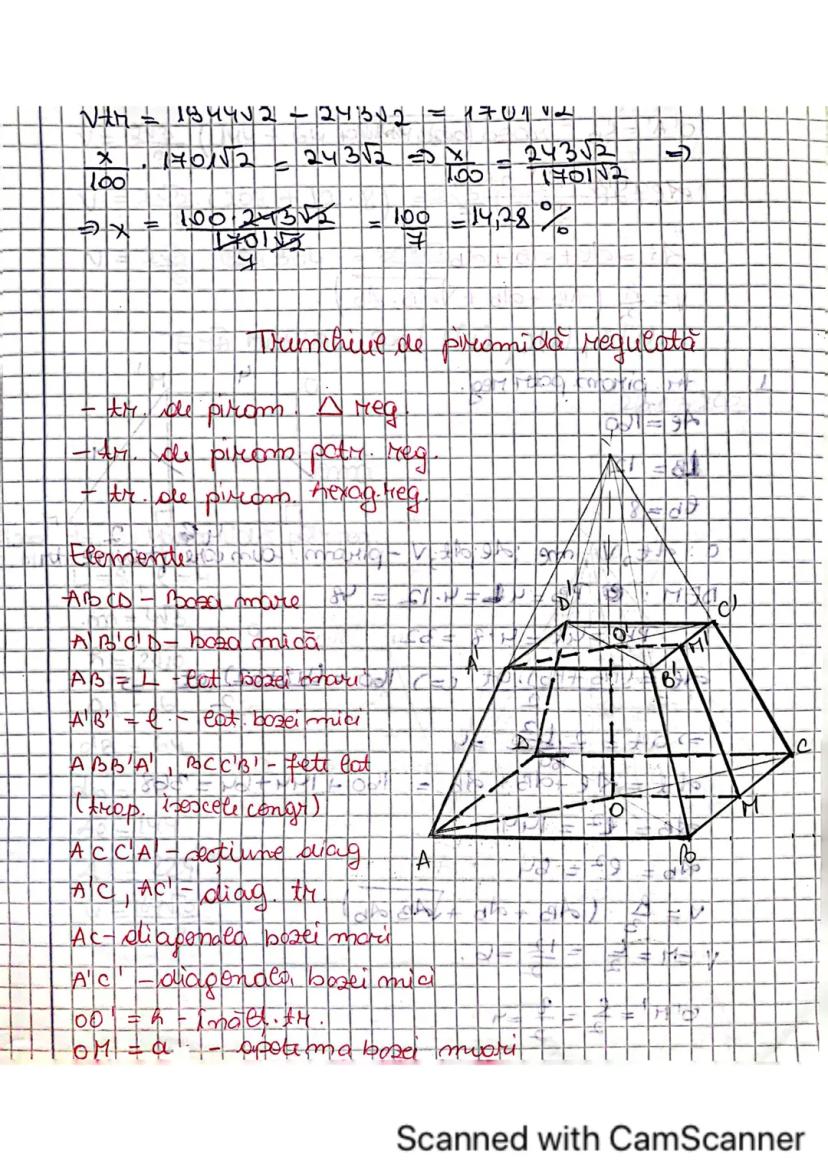 Vtr = 1944√2 - 243√2 = 1701√2
x/100 · 1701√2 = 243√2 => x/100 = 243√2/1701√2 =>
=> x = 100·243√2/1701√2 = 100/7 = 14,28 %
7
Trunchiul de piramidă regulată
- tr. de piram. △ reg.
- tr. de piram. patr. reg.
- tr. de piram. hexag. reg.
Elemente
ABCD - Baza mare
A'B'C'D - baza mică
AB = L - lat. bazei mari
A'B' = l - lat. bazei mici
ABB'A', BCC'B' - fețe lat
(trap. isoscele congr)
ACC'A' - secțiune diag
A'C, AC' - diag. tr.
AC - diagonala bazei mari
A'C' - diagonala bazei mici
OO' = h - înălț. tr.
OM = a - apotema bazei mari
V
D' C'
O' M'
A' B'
D C
O M
A B
Scanned with CamScanner